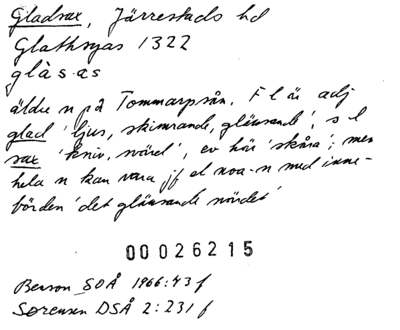 Gladsax, Järrestads hd
Glathsyas 1322
glàs·as
äldre n på Tommarpsån. F l är adj
glad 'ljus, skimrande, glänsande', s l
sax 'kniv, svärd', ev här 'skåra'; men
hela n kan vara jf el noa-n med inne-
börden 'det glänsande svärdet'
00026215
Benson SOÅ 1966:43 f
Sørensen DSÅ 2:231 f